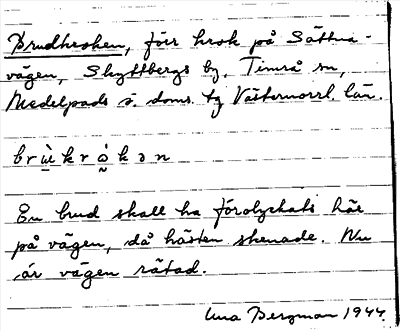 Brudkroken, förr krok på Sättna-
vägen, Skyttbergs by, Timrå sn,
Medelpads ö. doms. tg Västernorrl. län.
brùkrò̰kən
En brud skall ha förolyckats här
på vägen, då hästen skenade. Nu
är vägen rätad.
Una Bergman 1944.